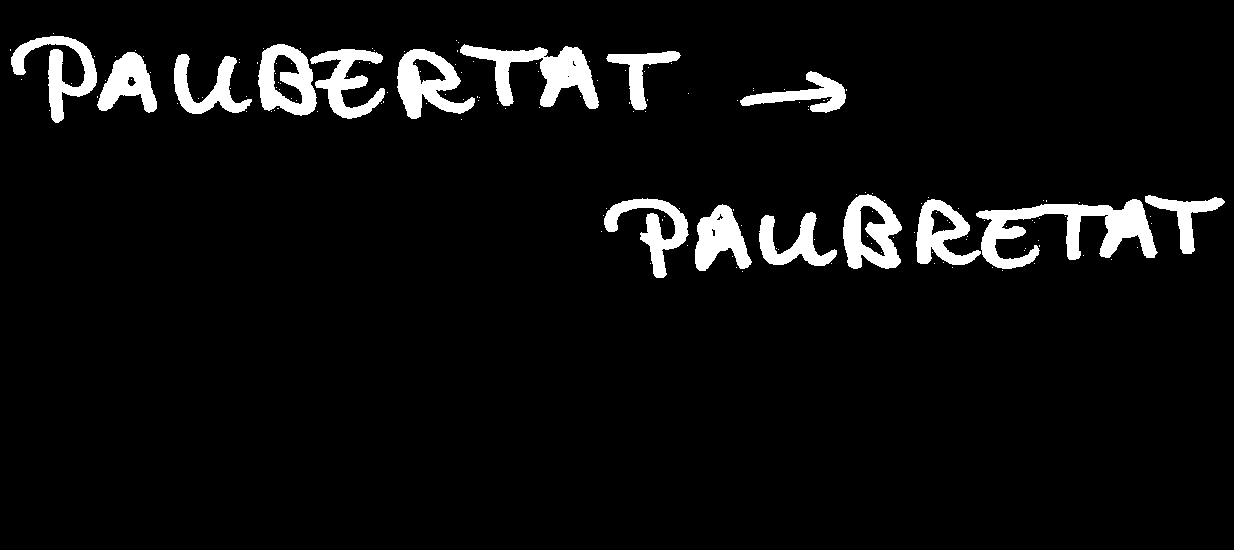 PAUBERTAT →
PAUBRETAT